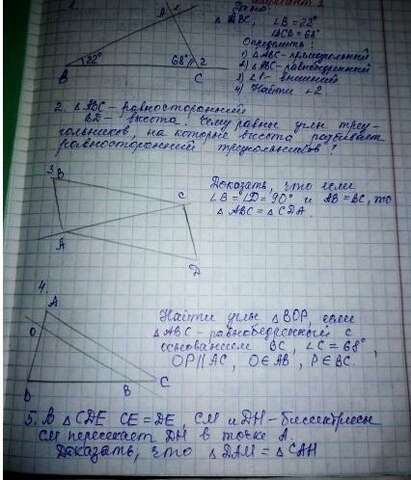 Вариант 1
1.
Дано:
△ABC, ∠B=22°
∠ACB=68°
Определить:
1) △ABC - прямоугольный
2) △ABC - равнобедренный
3) ∠1 - внешний
4) Найти ∠2
A 1
22° 68° 2
B C
2. △ABC - равносторонний
BD - высота. Чему равны углы треу-
гольников, на которые высота разбивает
равносторонний треугольников?
3. B
C
A
D
Доказать, что если
∠B=∠D=90° и AB=BC, то
△ABC=△CDA.
4.
A
O
B C
Найти углы △BOP, если
△ABC - равнобедренный с
основанием BC, ∠C=68°,
OP||AC, O∈AB, P∈BC.
5. В △CDE CE=DE, CM и DH - биссектрисы
CM пересекает DH в точке A.
Доказать, что △DAM=△CAH